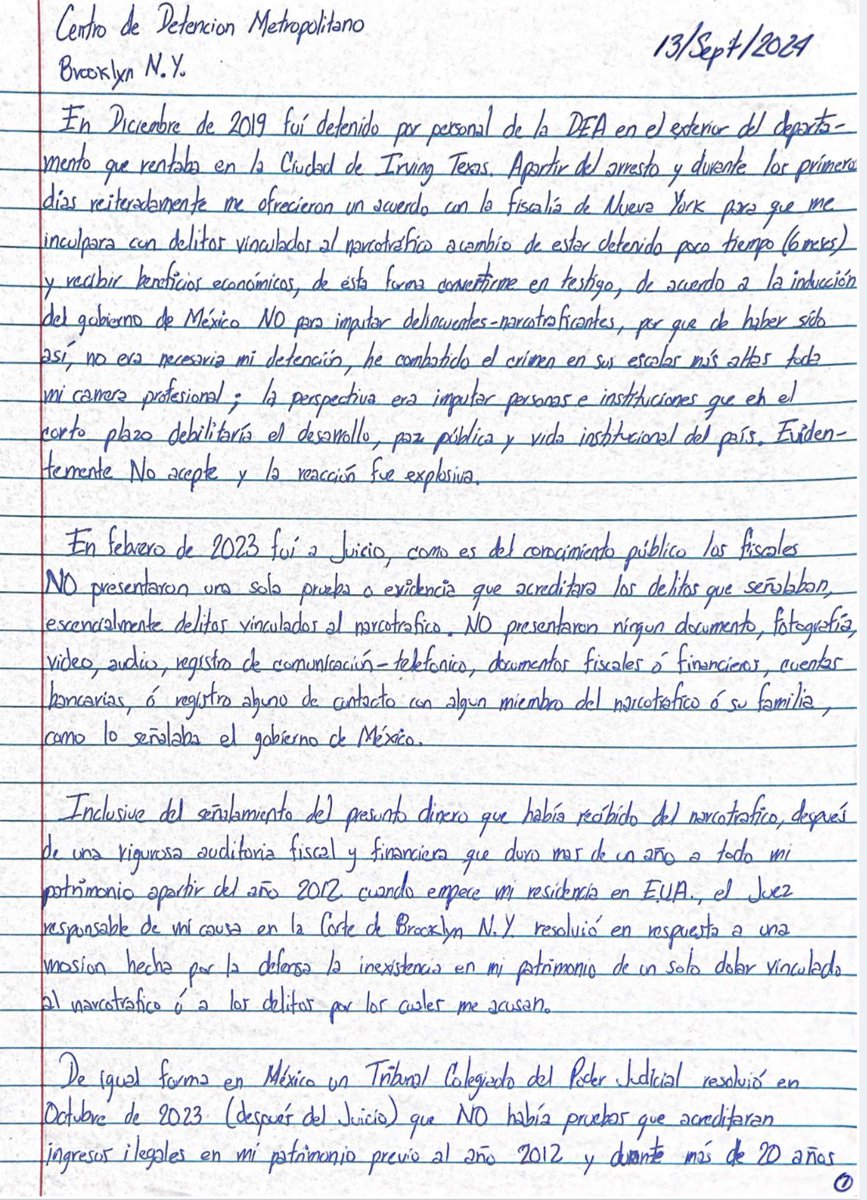 Centro de Detencion Metropolitano
13/Sept/2024
Brooklyn N.Y.
En Diciembre de 2019 fuí detenido por personal de la DEA en el exterior del departa-
mento que rentaba en la Ciudad de Irving Texas. Apartir del arresto y durante los primeros
días reiteradamente me ofrecieron un acuerdo con la fiscalía de Nueva York para que me
inculpara con delitos vinculados al narcotráfico acambio de estar detenido poco tiempo (6 meses)
y recibir beneficios económicos, de ésta forma convertirme en testigo, de acuerdo a la inducción
del gobierno de México NO para imputar delincuentes-narcotraficantes, por que de haber sido
así, no era necesaria mi detención, he combatido el crimen en sus escalas más altas toda
mi carrera profesional; la perspectiva era imputar personas e instituciones que en el
corto plazo debilitaría el desarrollo, paz pública y vida institucional del país. Eviden-
temente No acepte y la reacción fue explosiva.
En febrero de 2023 fuí a Juicio, como es del conocimiento público los fiscales
NO presentaron una sola prueba o evidencia que acreditara los delitos que señalaban,
escencialmente delitos vinculados al narcotrafico. NO presentaron ningun documento, fotografía,
video, audio, registro de comunicación-telefonico, documentos fiscales ó financieros, cuentas
bancarias, ó registro alguno de contacto con algun miembro del narcotrafico ó su familia,
como lo señalaba el gobierno de México.
Inclusive del señalamiento del presunto dinero que había recibido del narcotrafico, después
de una rigurosa auditoria fiscal y financiera que duro mas de un año a todo mi
patrimonio apartir del año 2012 cuando empece mi residencia en EUA., el Juez
responsable de mi causa en la Corte de Brooklyn N.Y. resolvió en respuesta a una
mosion hecha por la defensa la inexistencia en mi patrimonio de un solo dolar vinculado
al narcotrafico ó a los delitos por los cuales me acusan.
De igual forma en México un Tribunal Colegiado del Poder Judicial resolvió en
Octubre de 2023 (después del Juicio) que NO había pruebas que acreditaran
ingresos ilegales en mi patrimonio previo al año 2012 y durante más de 20 años
1